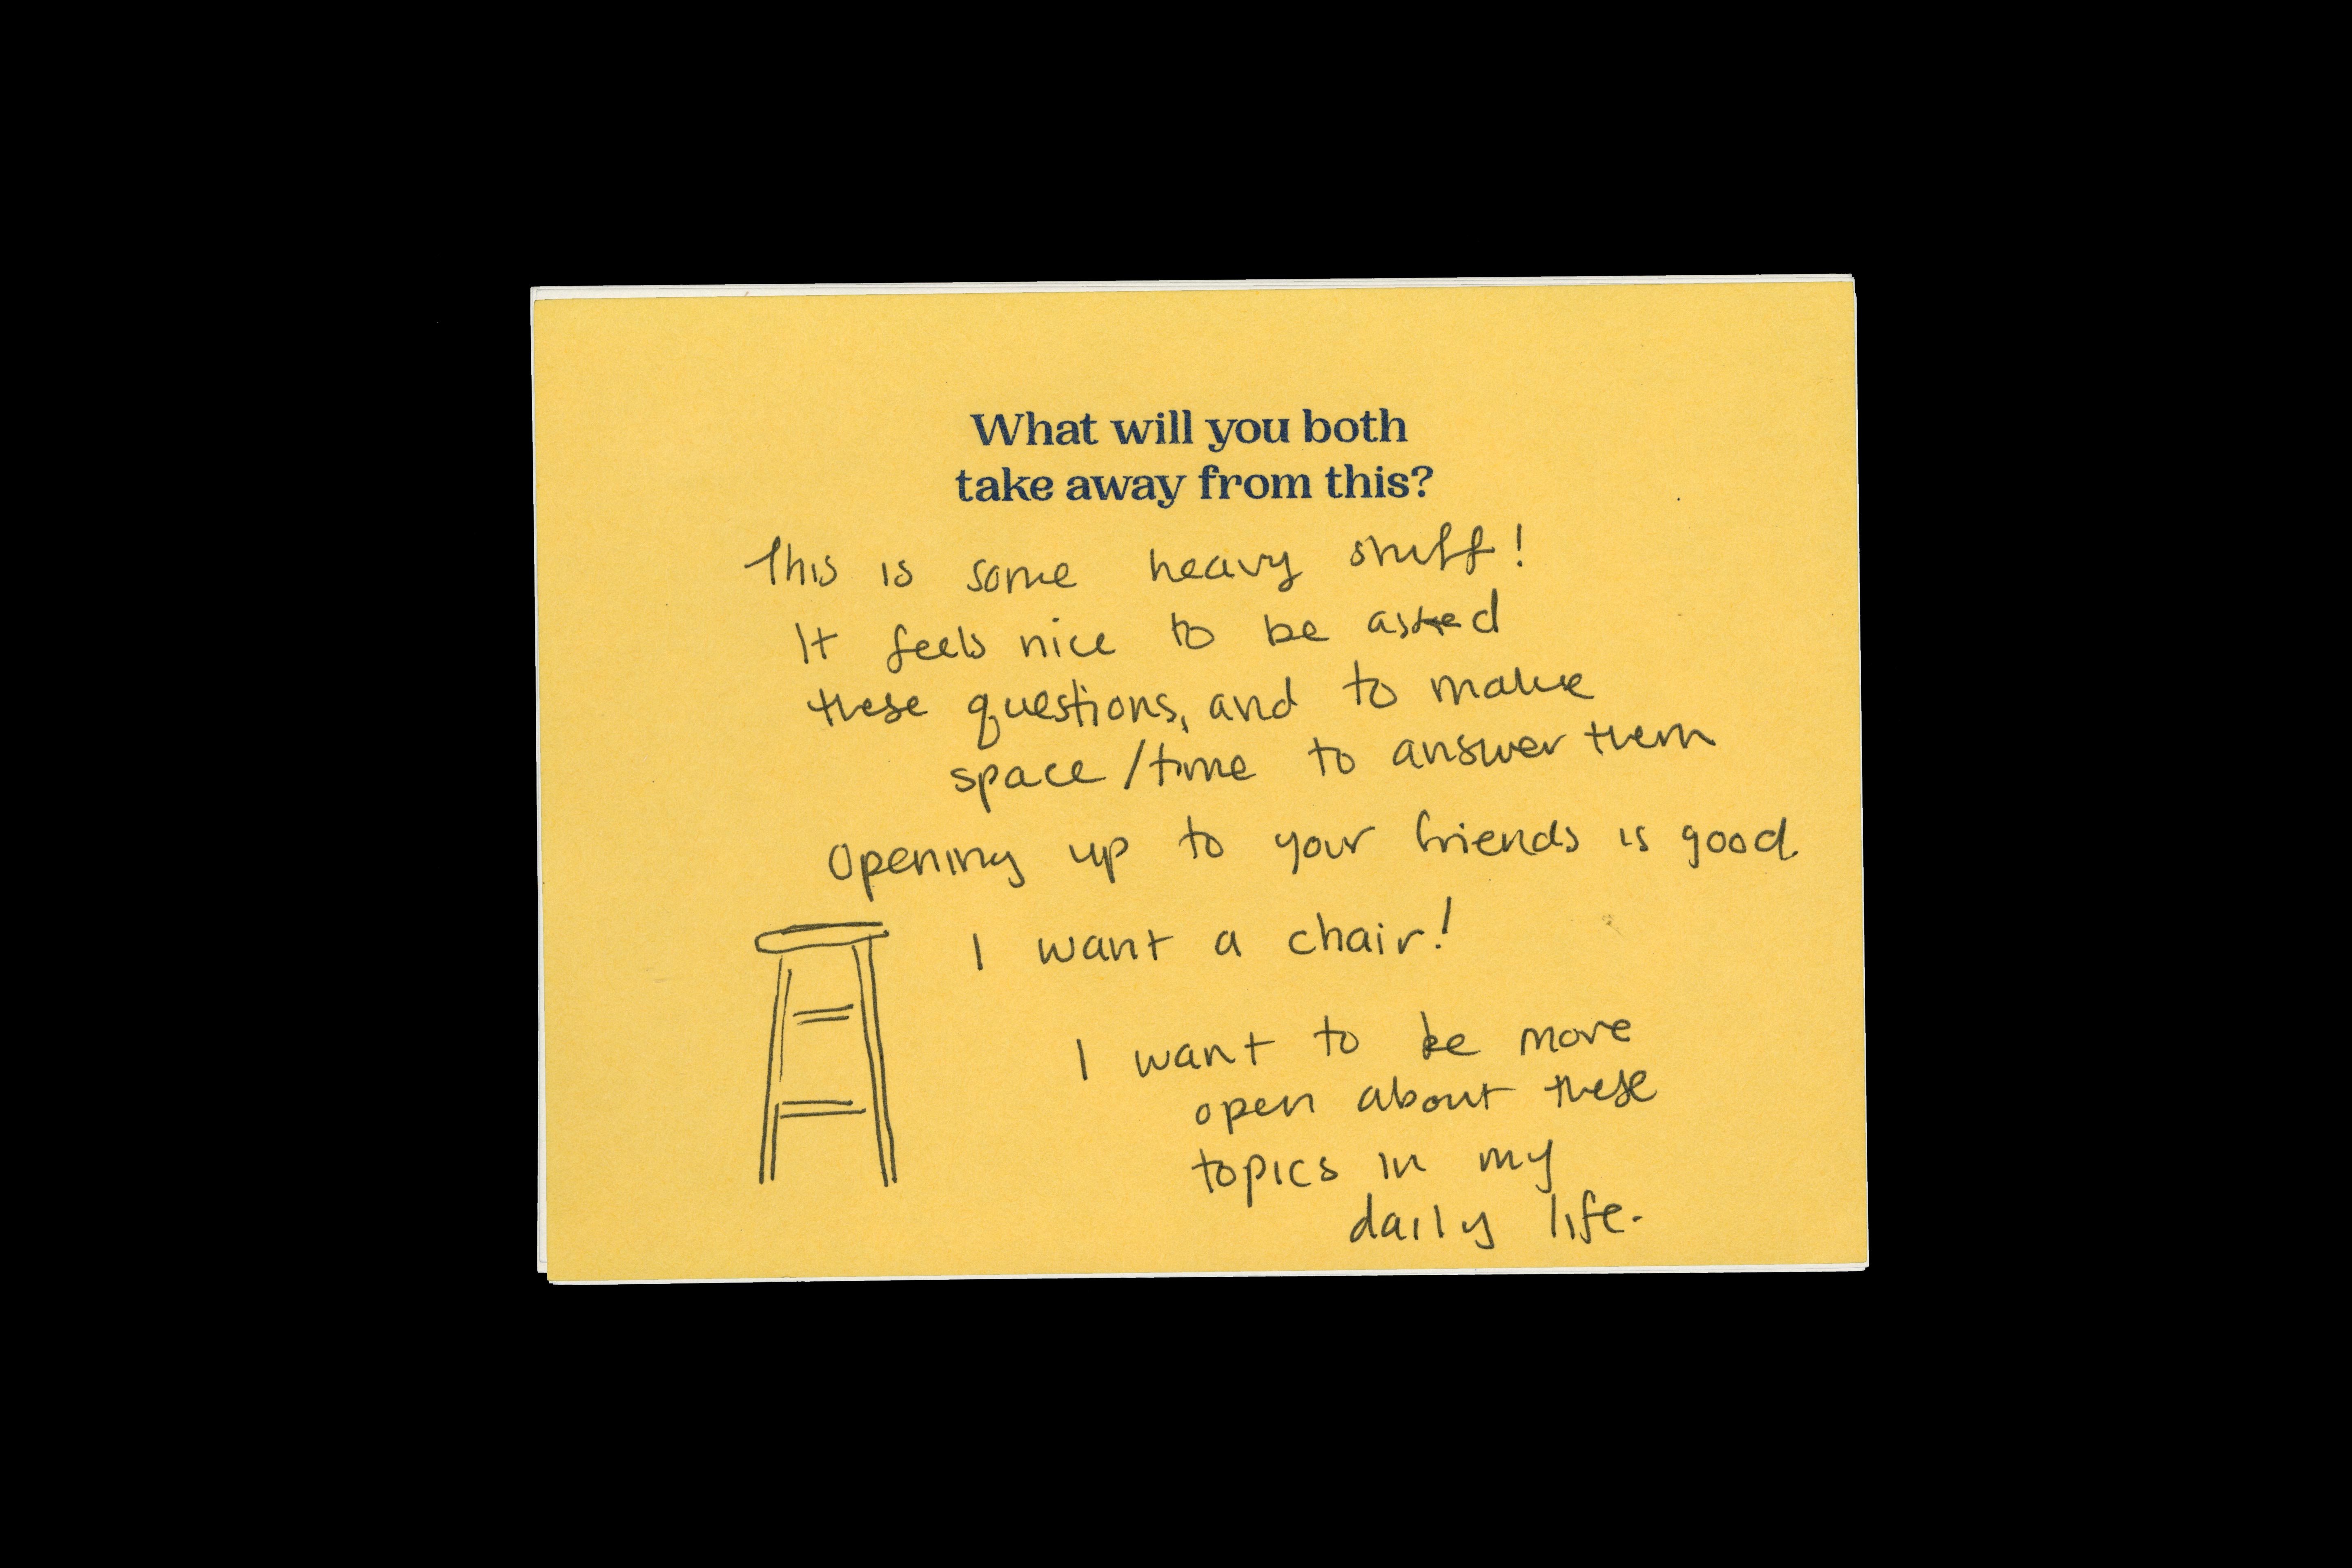 What will you both
take away from this?
This is some heavy stuff!
It feels nice to be asked
these questions, and to make
space/time to answer them
Opening up to your friends is good.
I want a chair!
I want to be more
open about these
topics in my
daily life.